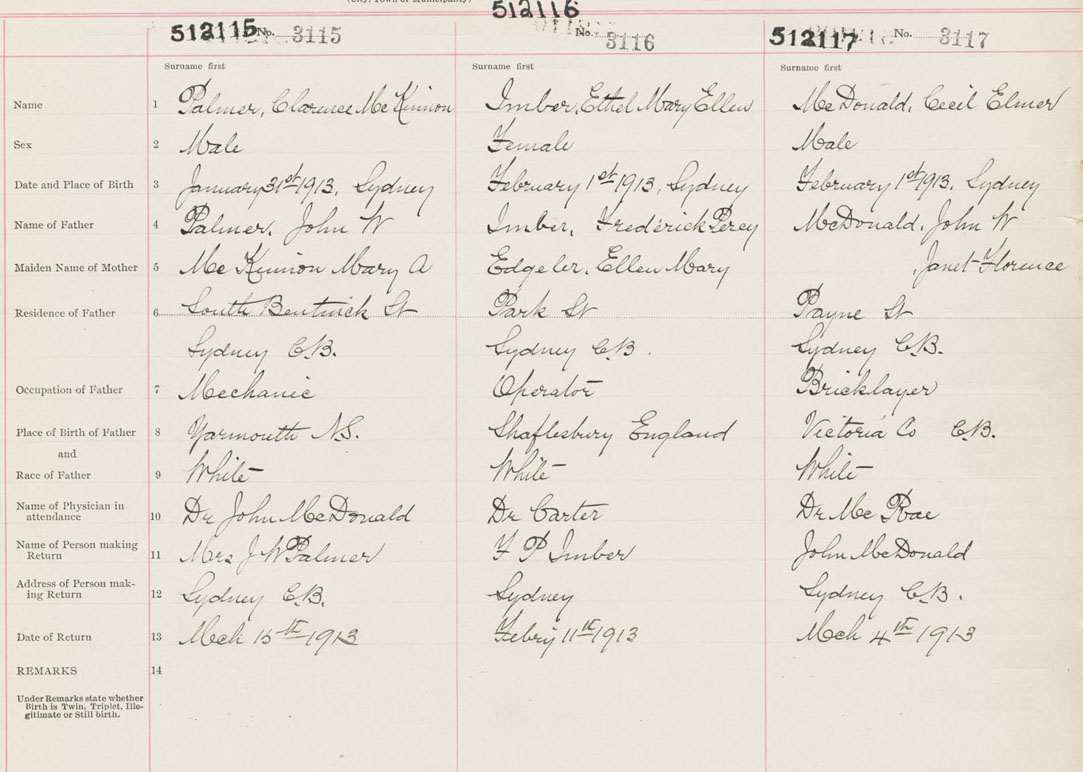 (City, Town or Municipality)
512115 No. 3115 512116 No. 3116 512117 No. 3117
Surname first Surname first Surname first
Name 1 Palmer, Clarence McKinnon Imber, Ethel Mary Ellen McDonald, Cecil Elmer
Sex 2 Male Female Male
Date and Place of Birth 3 January 31st 1913, Sydney February 1st 1913, Sydney February 1st 1913, Sydney
Name of Father 4 Palmer, John W Imber, Frederick Percy McDonald, John W
Maiden Name of Mother 5 McKinnon Mary A Edgeler, Ellen Mary Janet Florence
Residence of Father 6 South Bentinck St Park St Payne St
Sydney C.B. Sydney C.B. Sydney C.B.
Occupation of Father 7 Mechanic Operator Bricklayer
Place of Birth of Father 8 Yarmouth N.S. Shaftesbury England Victoria Co C.B.
and
Race of Father 9 White White White
Name of Physician in
attendance 10 Dr John McDonald Dr Carter Dr McRae
Name of Person making
Return 11 Mrs J W Palmer F P Imber John McDonald
Address of Person mak-
ing Return 12 Sydney C.B. Sydney Sydney C.B.
Date of Return 13 Mch 15th 1913 Febry 11th 1913 Mch 4th 1913
REMARKS 14
Under Remarks state whether
Birth is Twin, Triplet, Ille-
gitimate or Still birth.